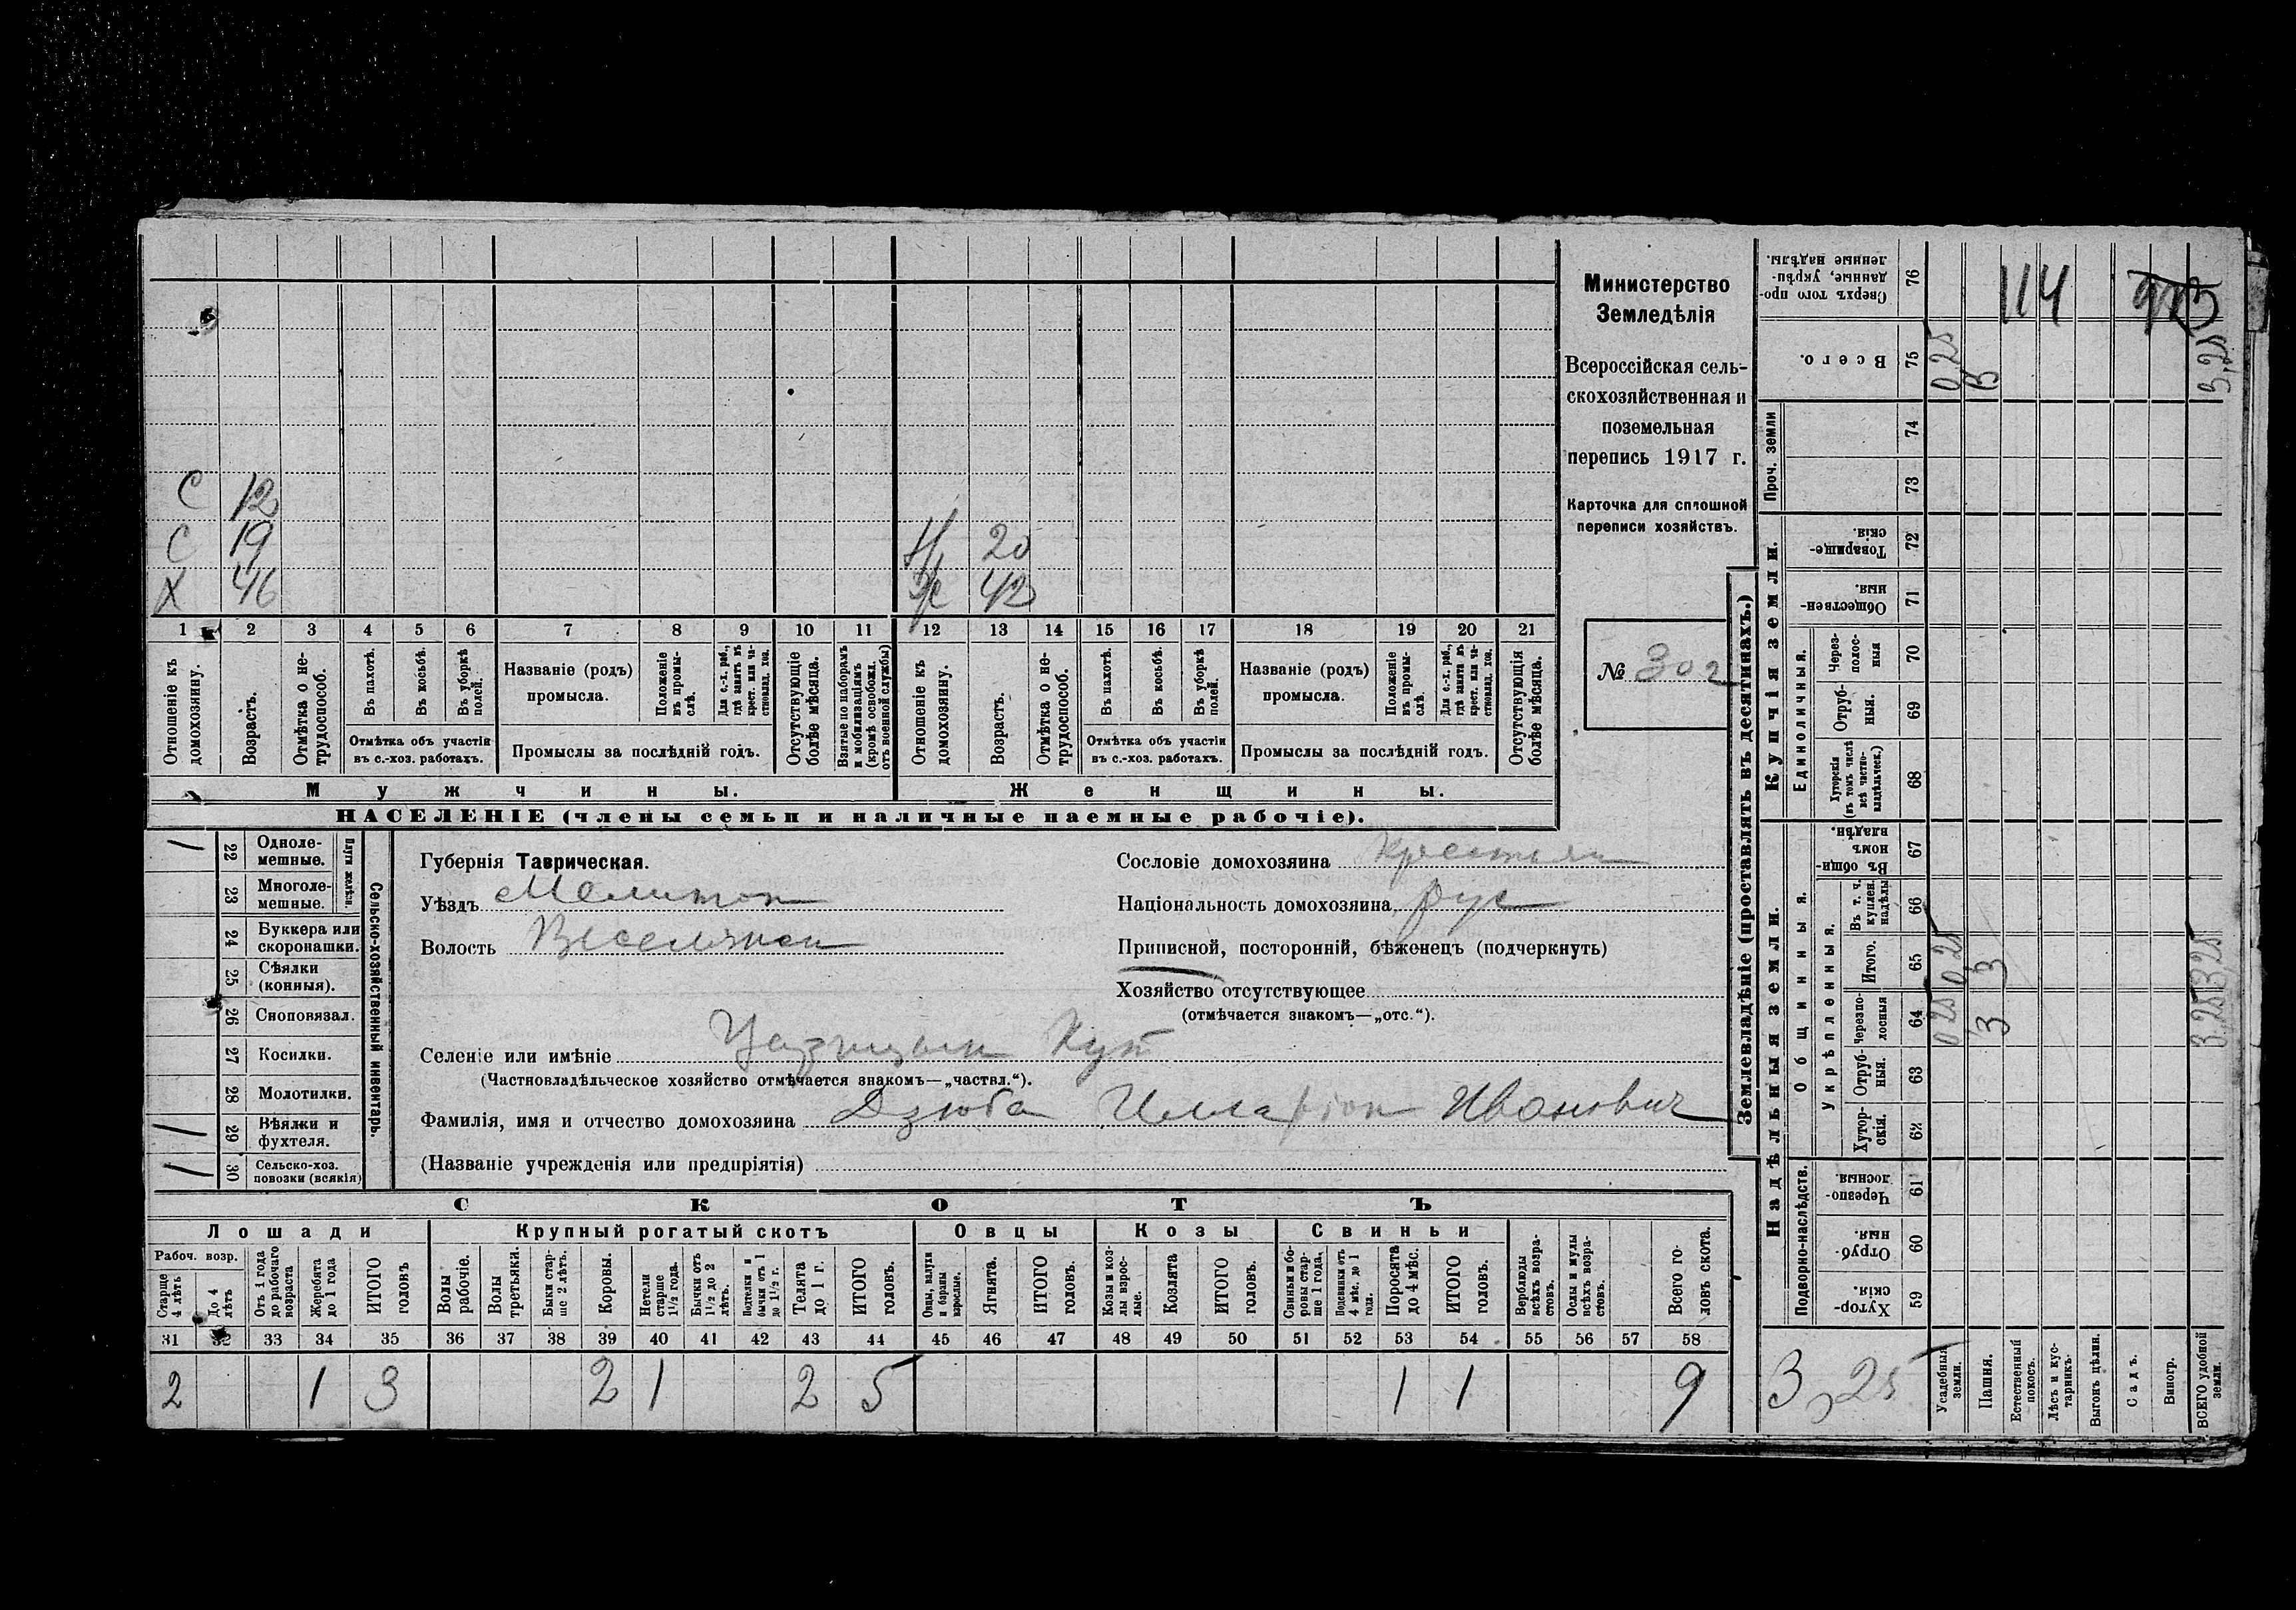 С 12
С 19 Н 20
Х 46 Ж 43
1 2 3 4 5 6 7 8 9 10 11 12 13 14 15 16 17 18 19 20 21
Отношеніе къ домохозяину.
Возрастъ.
Отмѣтка о нетрудоспособ.
Въ пахотѣ.
Въ косьбѣ.
Въ уборкѣ полей.
Отмѣтка объ участіи въ с.-хоз. работахъ.
Названіе (родъ) промысла.
Положеніе въ промыслѣ.
Для с.-х. раб., гдѣ занятъ въ крест. или частновлад. хоз.
Промыслы за послѣдній годъ.
Отсутствующіе болѣе мѣсяца.
Взятые по наборамъ и мобилизаціямъ (кромѣ освобожд. отъ военной службы)
Отношеніе къ домохозяину.
Возрастъ.
Отмѣтка о нетрудоспособ.
Въ пахотѣ.
Въ косьбѣ.
Въ уборкѣ полей.
Отмѣтка объ участіи въ с.-хоз. работахъ.
Названіе (родъ) промысла.
Положеніе въ промыслѣ.
Для с.-х. раб., гдѣ занята въ крест. или частновлад. хоз.
Промыслы за послѣдній годъ.
Отсутствующія болѣе мѣсяца.
Мужчины. Женщины.
НАСЕЛЕНІЕ (члены семьи и наличные наемные рабочіе).
Министерство
Земледѣлія
Всероссійская сель-
скохозяйственная и
поземельная
перепись 1917 г.
Карточка для сплошной
переписи хозяйствъ.
№ 302
Сельско-хозяйственный инвентарь.
Плуги желѣзн.
/ 22 Однолемешные.
23 Многолемешные.
24 Буккера или скоропашки.
25 Сѣялки (конныя).
26 Сноповязал.
27 Косилки.
28 Молотилки.
/ 29 Вѣялки и фухтеля.
/ 30 Сельско-хоз. повозки (всякія)
Губернія Таврическая.
Уѣздъ Мелитоп
Волость Веселянск
Сословіе домохозяина Крестьян
Національность домохозяина рус
Приписной, посторонній, бѣженецъ (подчеркнуть)
Хозяйство отсутствующее
(отмѣчается знакомъ—„отс.“).
Селеніе или имѣніе Кут
(Частновладѣльческое хозяйство отмѣчается знакомъ—„частвл.“).
Фамилія, имя и отчество домохозяина Дзюба Илларіон Иванович
(Названіе учрежденія или предпріятія)
СКОТЪ
Лошади Крупный рогатый скотъ Овцы Козы Свиньи
Рабоч. возр.
Старше 4 лѣтъ
До 4 лѣтъ
Отъ 1 года до рабочаго возраста
Жеребята до 1 года
ИТОГО головъ
Волы рабочіе.
Волы третьяки.
Быки старше 2 лѣтъ.
Коровы.
Нетели старше 1½ года.
Бычки отъ 1½ до 2 лѣтъ.
Подтелки и бычки отъ 1 до 1½ г.
Телята до 1 г.
ИТОГО головъ.
Овцы, валухи и бараны взрослые.
Ягнята.
ИТОГО головъ.
Козы и козлы взрослые.
Козлята
ИТОГО головъ.
Свиньи и боровы старше 1 года.
Подсвинки отъ 4 мѣс. до 1 года.
Поросята до 4 мѣс.
ИТОГО головъ.
Верблюды всѣхъ возрастовъ.
Ослы и мулы всѣхъ возрастовъ.
Всего головъ скота.
31 32 33 34 35 36 37 38 39 40 41 42 43 44 45 46 47 48 49 50 51 52 53 54 55 56 57 58
2 1 3 2 1 2 5 1 1 9
Землевладѣніе (проставлять въ десятинахъ.)
Надѣльныя земли. Купчія земли. Проч. земли
Подворно-наслѣдств.
Общинныя.
Укрѣпленныя.
Единоличныя.
Хуторскія. 59
Отрубныя. 60
Черезполосныя. 61
Хуторскія. 62
Отрубныя. 63
Черезполосныя 64 0,25 3 3,25
Итого. 65 0,25 3 3,25
Въ т. ч. куплен. надѣлы 66
Въ общинномъ владѣн. 67
Хуторскія (въ томъ числѣ всѣ частновладѣльческ.) 68
Отрубныя. 69
Черезполосныя 70
Общественныя. 71
Товарищескія. 72
73
74
Всего. 75 0,25 3 3,25
Сверхъ того проданные, укрѣпленные надѣлы. 76
114
3,25
Усадебныя земли.
Пашня.
Естественный покосъ.
Лѣсъ и кустарникъ.
Выгонъ цѣлин.
Садъ.
Виногр.
ВСЕГО удобной земли.